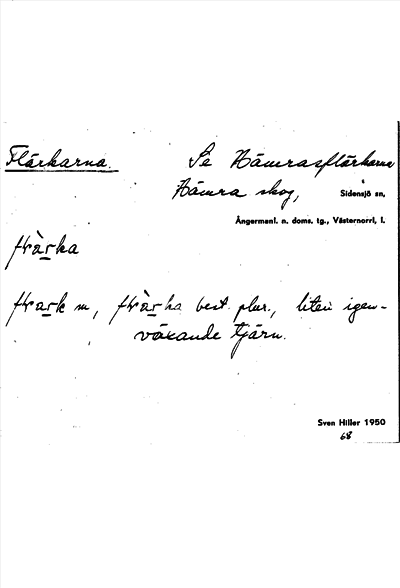 Flärkarna. Se Hämrasflärkarna
Hämra skog, Sidensjö sn,
Ångermanl. n. doms. tg., Västernorrl. l.
best. plur., liten igen-
växande tjärn.
Sven Hiller 1950
68